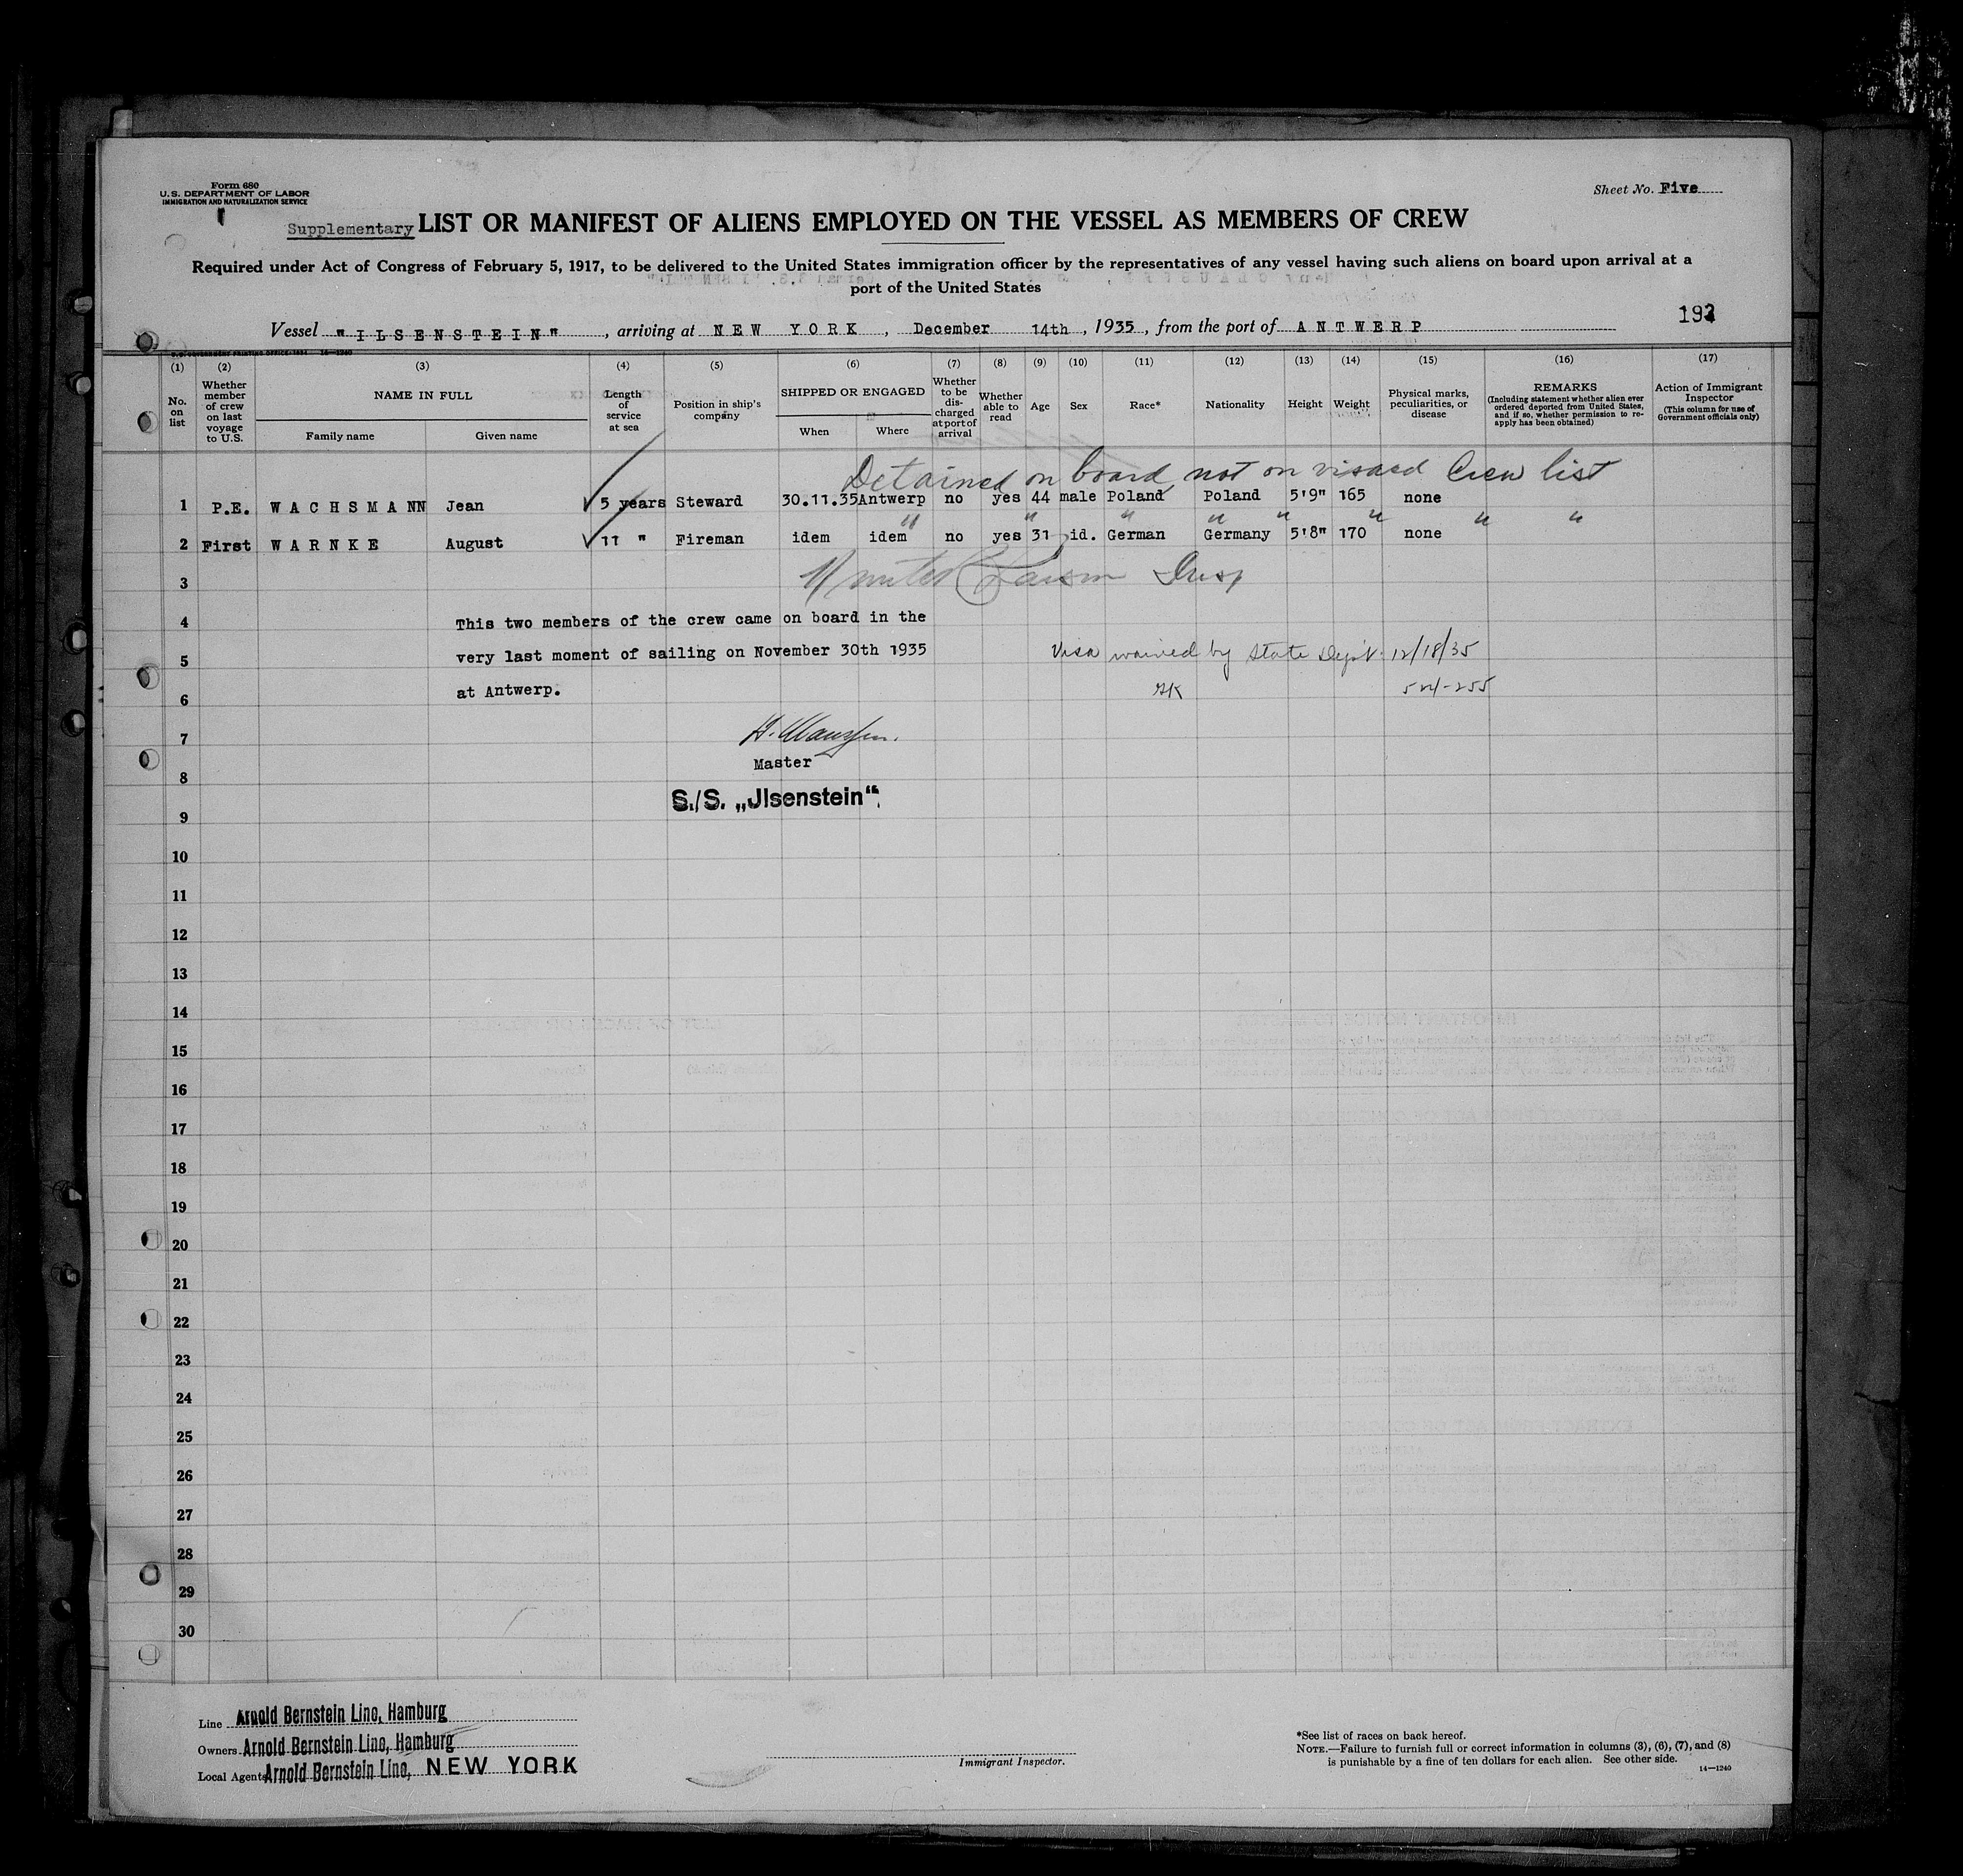 Form 680
U. S. DEPARTMENT OF LABOR
IMMIGRATION AND NATURALIZATION SERVICE
Sheet No. Five
Supplementary LIST OR MANIFEST OF ALIENS EMPLOYED ON THE VESSEL AS MEMBERS OF CREW
Required under Act of Congress of February 5, 1917, to be delivered to the United States immigration officer by the representatives of any vessel having such aliens on board upon arrival at a
port of the United States
193
Vessel "ILSENSTEIN", arriving at NEW YORK, December 14th, 1935, from the port of ANTWERP
U.S. GOVERNMENT PRINTING OFFICE: 1934 14—1240
(1) (2) (3) (4) (5) (6) (7) (8) (9) (10) (11) (12) (13) (14) (15) (16) (17)
No. on list
Whether member of crew on last voyage to U.S.
NAME IN FULL
Family name Given name
Length of service at sea
Position in ship's company
SHIPPED OR ENGAGED
When Where
Whether to be discharged at port of arrival
Whether able to read
Age
Sex
Race*
Nationality
Height
Weight
Physical marks, peculiarities, or disease
REMARKS
(Including statement whether alien ever ordered deported from United States, and if so, whether permission to reapply has been obtained)
Action of Immigrant Inspector
(This column for use of Government officials only)
Detained on board, not on visaed Crew list
1 P.E. WACHSMANN Jean 5 years Steward 30.11.35 Antwerp no yes 44 male Poland Poland 5'9" 165 none
" " " " " " " "
2 First WARNKE August 11 " Fireman idem idem no yes 31 id. German Germany 5'8" 170 none
3
Insp
4 This two members of the crew came on board in the
5 very last moment of sailing on November 30th 1935
Visa waived by State Dep't. 12/18/35
6 at Antwerp.
524-255
7
Master
8
S./S. „Jlsenstein“
9
10
11
12
13
14
15
16
17
18
19
20
21
22
23
24
25
26
27
28
29
30
Line Arnold Bernstein Line, Hamburg
Owners Arnold Bernstein Line, Hamburg
Local Agents Arnold Bernstein Line, NEW YORK
Immigrant Inspector.
*See list of races on back hereof.
NOTE.—Failure to furnish full or correct information in columns (3), (6), (7), and (8)
is punishable by a fine of ten dollars for each alien. See other side.
14—1240